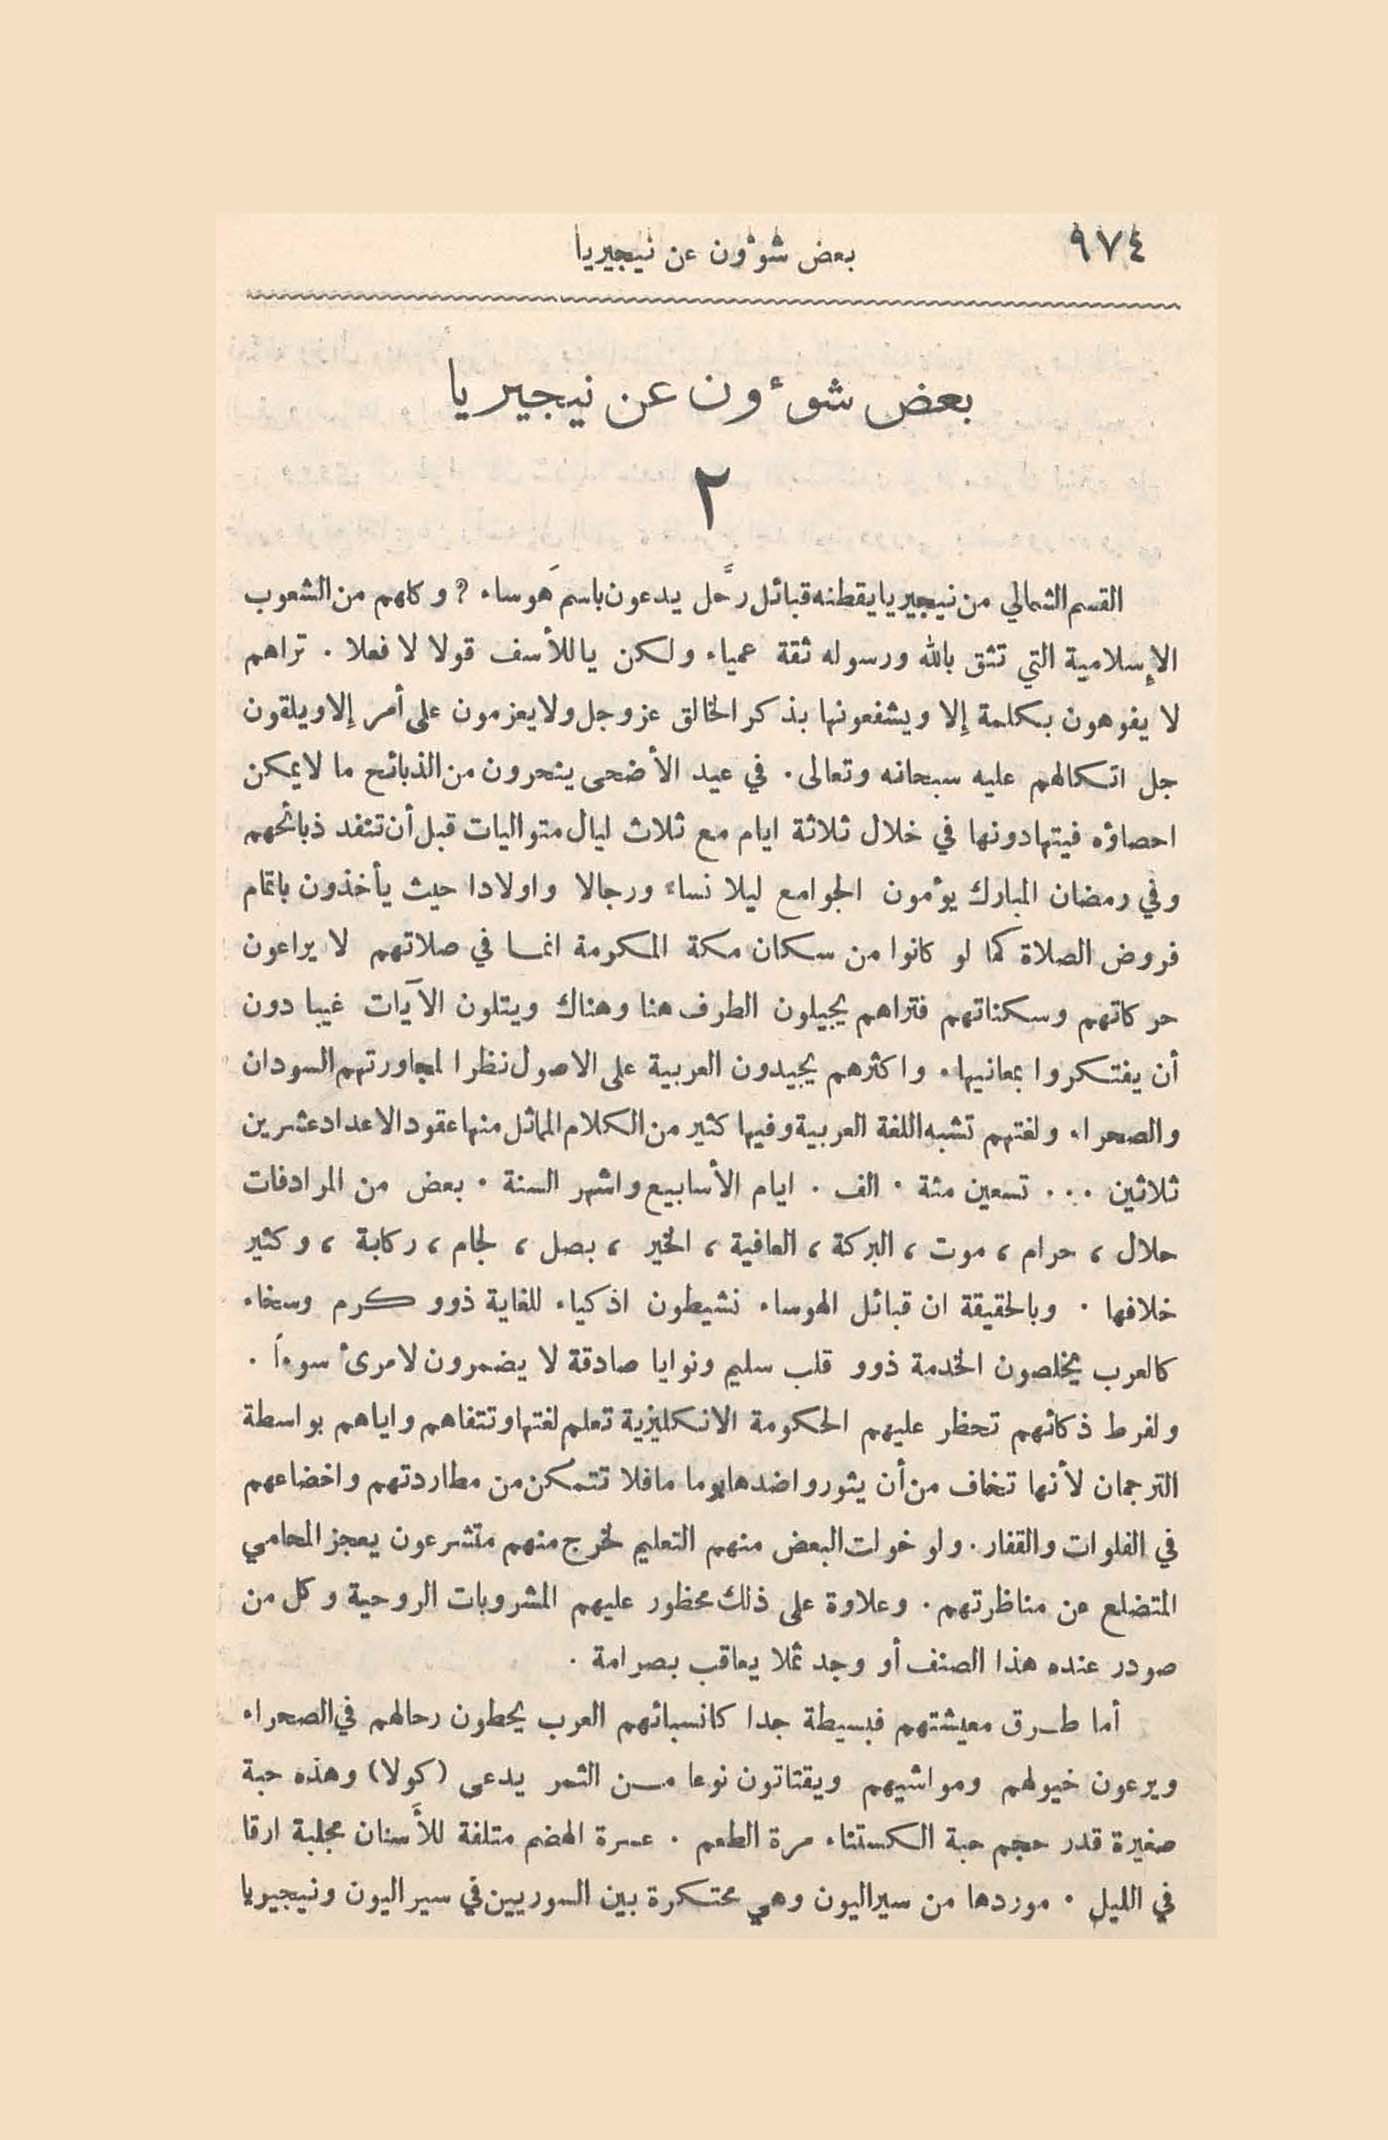 ٩٧٤
بعض شؤون عن نيجيريا
بعض شوءون عن نيجيريا
٢
القسم الشمالي من نيجيريا يقطنه قبائل رحَّل يدعون باسم هَوساء ? وكلهم من الشعوب
الإسلامية التي تثق بالله ورسوله ثقة عمياء ولكن ياللأسف قولا لا فعلا . تراهم
لا يفوهون بكلمة إلا ويشفعونها بذكر الخالق عز وجل ولا يعزمون على أمر إلا ويلقون
جل اتكالهم عليه سبحانه وتعالى . في عيد الأضحى ينحرون من الذبائح ما لا يمكن
احصاؤه فيتهادونها في خلال ثلاثة ايام مع ثلاث ليال متواليات قبل أن تنفد ذبائحهم
وفي رمضان المبارك يؤمون الجوامع ليلا نساءً ورجالا واولادا حيث يأخذون باتمام
فروض الصلاة كما لو كانوا من سكان مكة المكرمة انما في صلاتهم لا يراعون
حركاتهم وسكناتهم فتراهم يجيلون الطرف هنا وهناك ويتلون الآيات غيبا دون
أن يفتكروا بمعانيها . واكثرهم يجيدون العربية على الاصول نظرا لمجاورتهم السودان
والصحراء ولغتهم تشبه اللغة العربية وفيها كثير من الكلام المماثل منها عقود الاعداد عشرين
ثلاثين ... تسعين مئة . الف . ايام الأسابيع واشهر السنة . بعض من المرادفات
حلال ، حرام ، موت ، البركة ، العافية ، الخير ، بصل ، لجام ، ركابة ، وكثير
خلافها . وبالحقيقة ان قبائل الهوساء نشيطون اذكياء للغاية ذوو كرم وسخاء
كالعرب يخلصون الخدمة ذوو قلب سليم ونوايا صادقة لا يضمرون لامرئ سوءاً .
ولفرط ذكائهم تحظر عليهم الحكومة الانكليزية تعلم لغتها وتتفاهم واياهم بواسطة
الترجمان لأنها تخاف من أن يثوروا ضدها يوما ما فلا تتمكن من مطاردتهم واخضاعهم
في الفلوات والقفار . ولو خولت البعض منهم التعليم لخرج منهم متشرعون يعجز المحامي
المتضلع عن مناظرتهم . وعلاوة على ذلك محظور عليهم المشروبات الروحية وكل من
صودر عنده هذا الصنف أو وجد ثملا يعاقب بصرامة .
أما طرق معيشتهم فبسيطة جدا كانسبائهم العرب يحطون رحالهم في الصحراء
ويرعون خيولهم ومواشيهم ويقتاتون نوعا من الثمر يدعى (كولا) وهذه حبة
صغيرة قدر حجم حبة الكستناء مرة الطعم . عسرة الهضم متلفة للأَسنان مجلبة ارقا
في الليل . موردها من سيراليون وهي محتكرة بين السوريين في سيراليون ونيجيريا